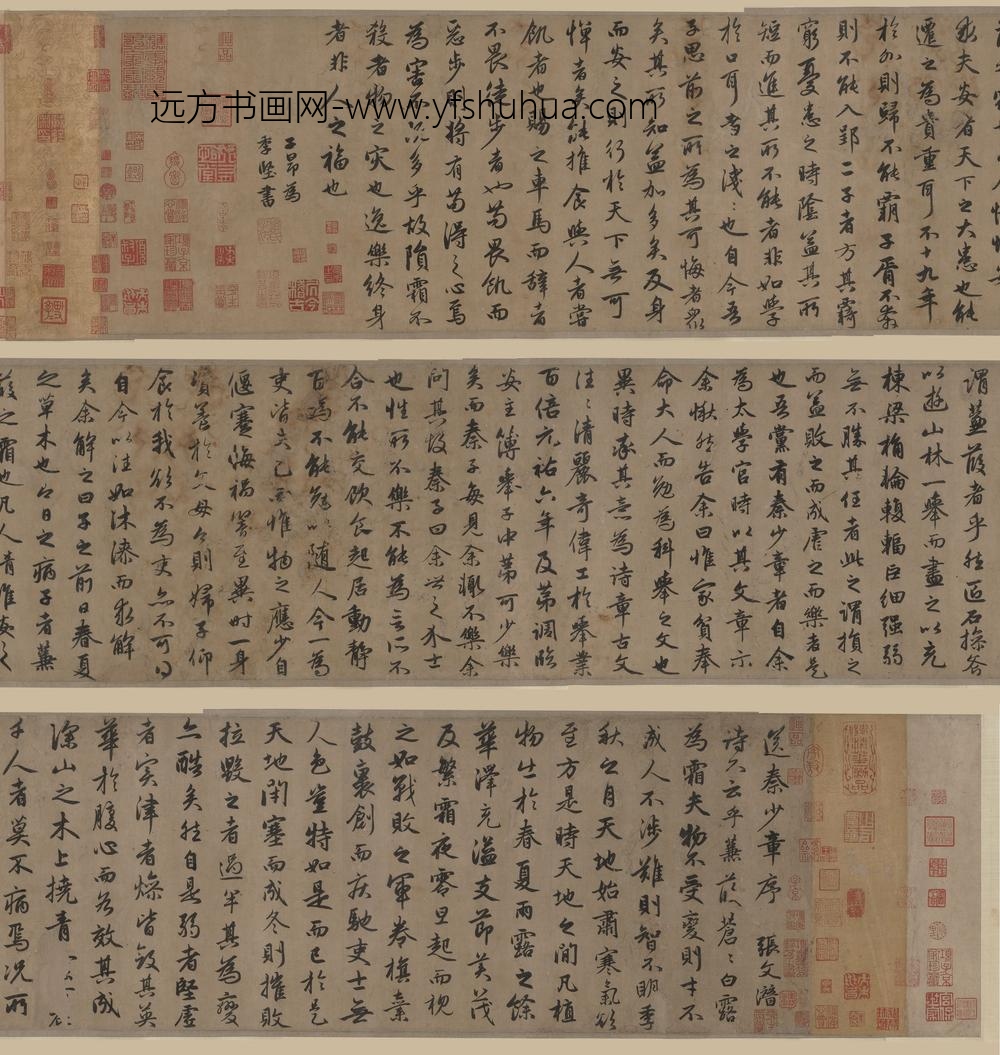 送秦少章序 張文潛
詩不云乎蒹葭蒼〻白露
為霜夫物不受變則才不
成人不涉難則智不明季
秋之月天地始肅寒氣欲
至方是時天地之間凡植
物出於春夏雨露之餘
華澤充溢支節美茂
及繁霜夜零旦起而視
之如戰敗之軍卷旗棄
鼓裹創而疾馳吏士無
人色豈特如是而已於是
天地閉塞而成冬則摧敗
拉毀之者過半其為變
亦酷矣然自是弱者堅虛
者實津者燥皆斂其英
華於腹心而各效其成
深山之木上撓青
千人者莫不病焉況所
謂蒹葭者乎然匠石操斧
以遊山林一舉而盡之以充
棟梁桷輪輹輻巨細強弱
無不勝其任者此之謂損之
而益敗之而成虐之而樂者是
也吾黨有秦少章者自余
為太學官時以其文章示
余愀然告余曰惟家貧奉
命大人而勉為科舉之文也
異時率其意為詩章古文
往〻清麗奇偉工於舉業
百倍元祐六年及第調臨
安主簿舉子中第可少樂
矣而秦子每見余輒不樂余
問其故秦子曰余世之介士
也性所不樂不能為言所不
合不能交飲食起居動靜
百為不能勉以隨人今一為
吏皆失己而惟物之應少自
偃蹇悔禍響至異時一身
資養於父母今則婦子仰
食於我欲不為吏亦不可得
自今以往如沐漆而求解
矣余解之曰子之前日春夏
之草木也今日之病子者蒹
葭之霜也凡人情惟安之
求夫安者天下之大患也能
遷之為貴重耳不十九年
於外則歸不能霸子胥不奔
則不能入郢二子者方其羇
窮憂患之時陰益其所
短而進其所不能者非如學
於口耳者之淺〻也自今吾
子思前之所為其可悔者眾
矣其所知益加多矣反身
而安之則行於天下無可
憚者矣能推食與人者嘗
飢者也賜之車馬而辭者
不畏徒步者也苟畏飢而
惡步則將有苟得之心焉
為害不既多乎故隕霜不
殺者物之災也逸樂終身
者非人之福也
子昂為
季堅書
远方书画网-www.yfshuhua.com